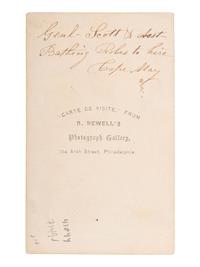 Genl. Scott & last
Bathing Robes to hire
Cape May
CARTE DE VISITE, FROM
R. NEWELL'S
Photograph Gallery,
Arch Street, Philadelphia.